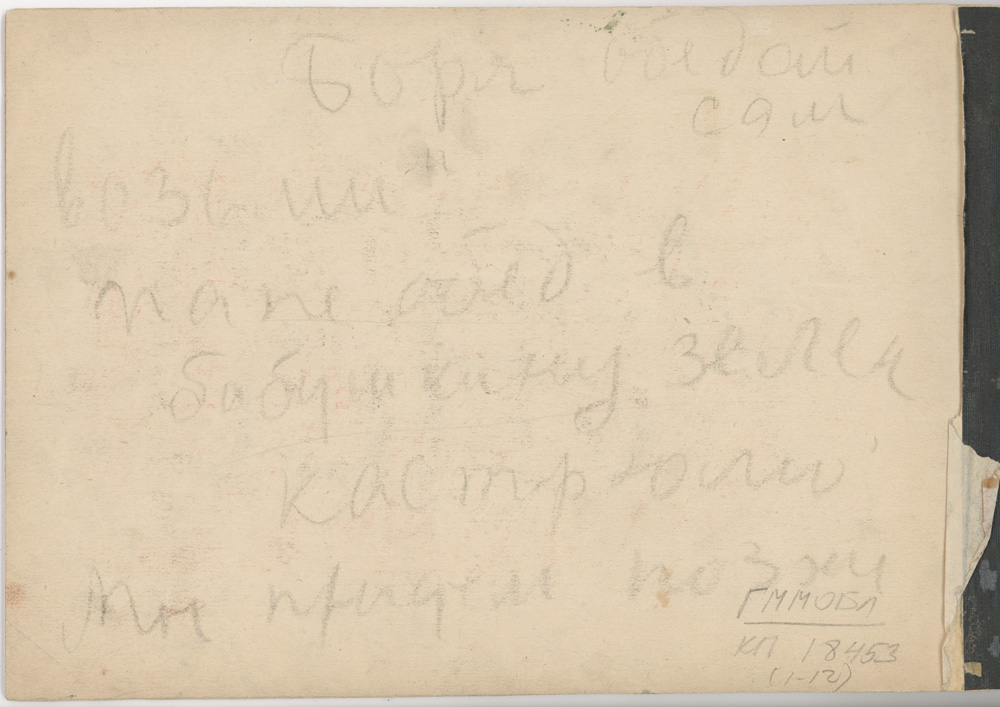 Боря обедай
сам
возьми
папе обед в
бабушкину зелен
кастрюлю
Мы придем позже
ГММОБЛ
КП 18453
(1-12)